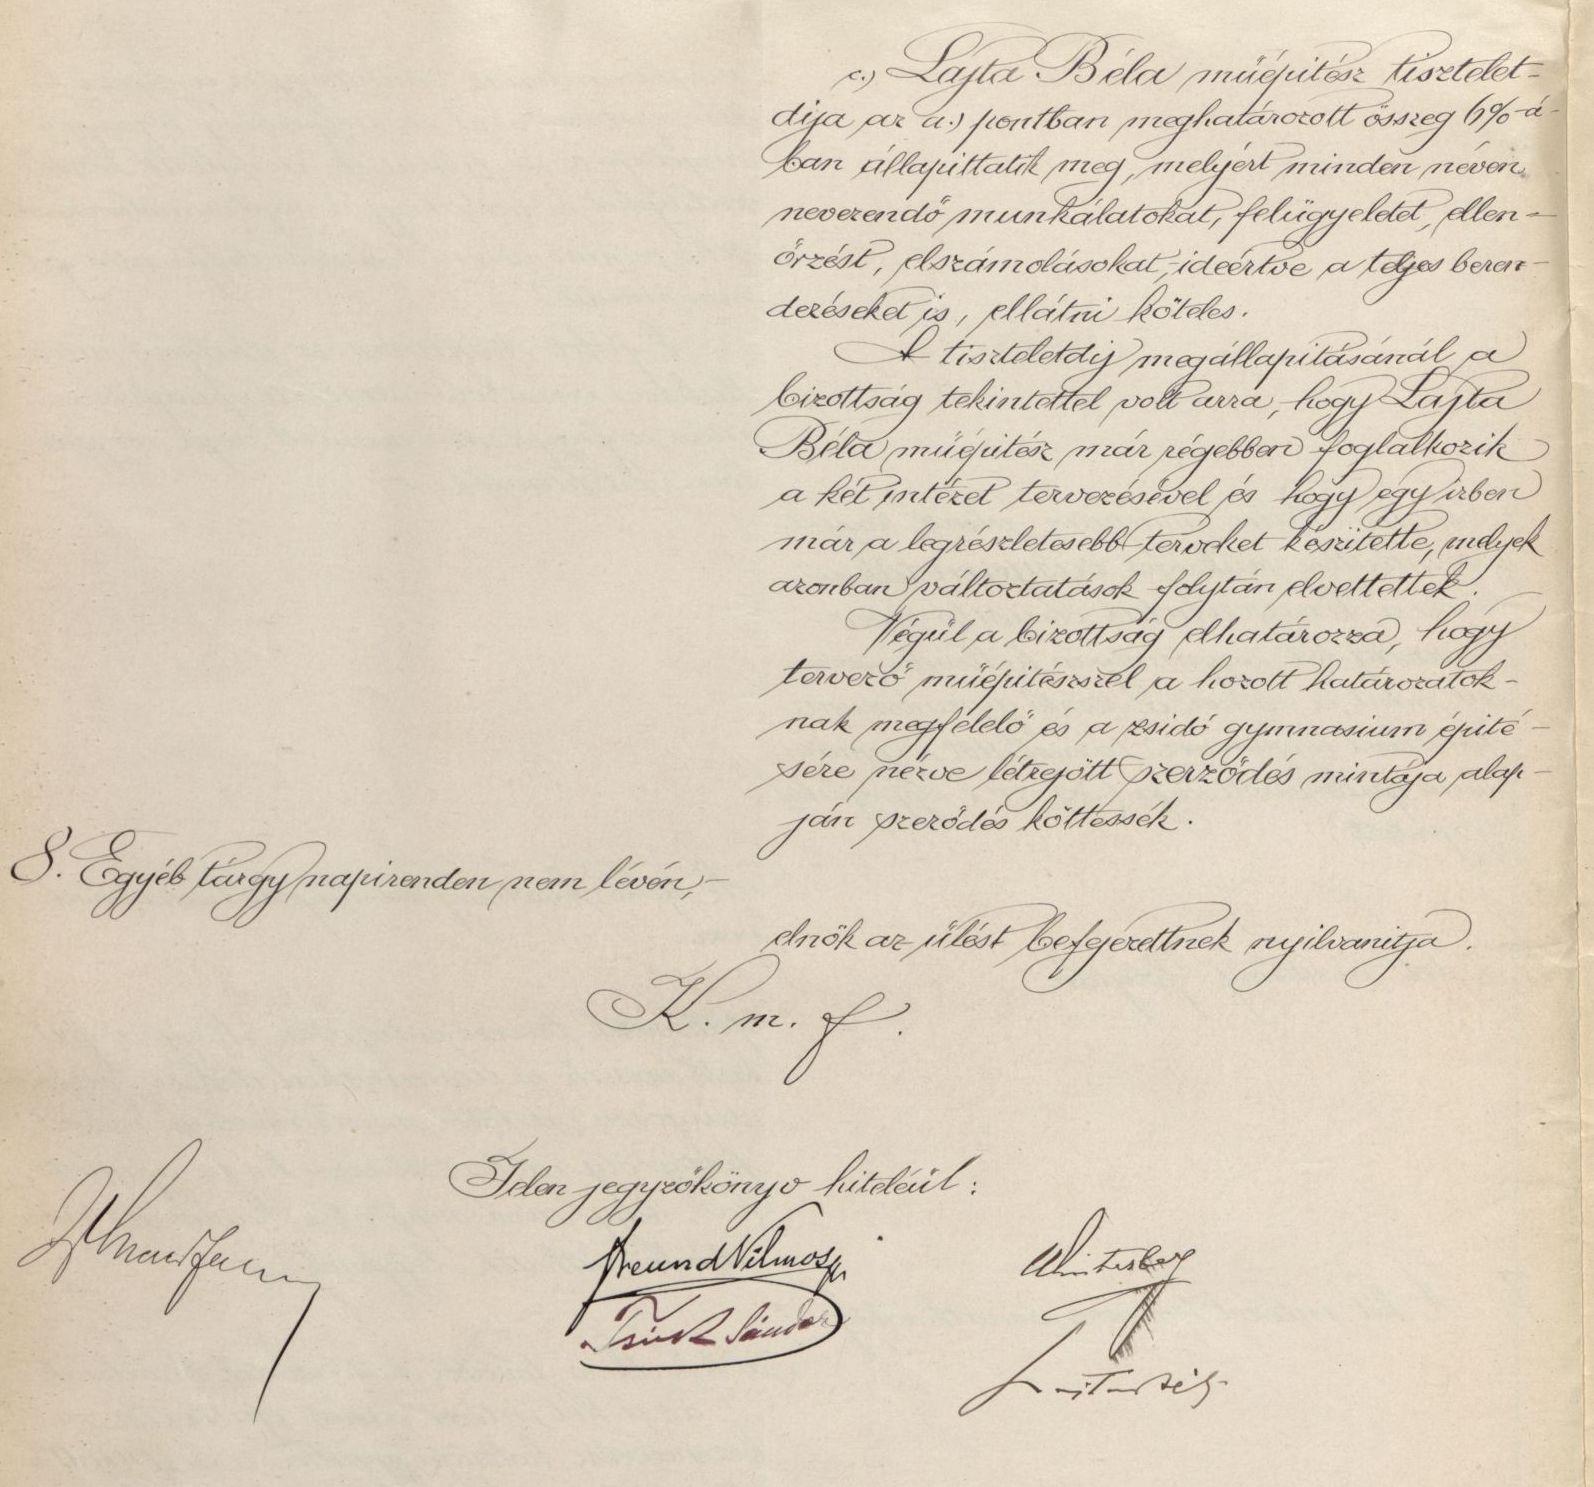 c.) Lajta Béla müépitész tisztelet-
dija az a.) pontban meghatározott összeg 6%-á-
ban állapittatik meg, melyért minden néven
nevezendő munkálatokat, felügyeletet, ellen-
őrzést, elszámolásokat, ideértve a teljes beren-
dezéseket is, ellátni köteles.
A tiszteletdij megállapitásánál a
bizottság tekintettel volt arra, hogy Lajta
Béla müépitész már régebben foglalkozik
a két intézet tervezésével és hogy egy izben
már a legrészletesebb terveket készitette, melyek
azonban változtatások folytán elvettettek.
Végül a bizottság elhatározza, hogy
tervező müépitészszel a hozott határozatok-
nak megfelelő és a zsidó gymnasium épité-
sére nézve létrejött szerződés mintája alap-
ján szerződés köttessék.
8. Egyéb tárgy napirenden nem lévén,-
elnök az ülést befejezettnek nyilvanitja.
K. m. f.
Jelen jegyzőkönyv hiteléül:
Freund Vilmos
Winterberg
Sándor
Lajta Béla